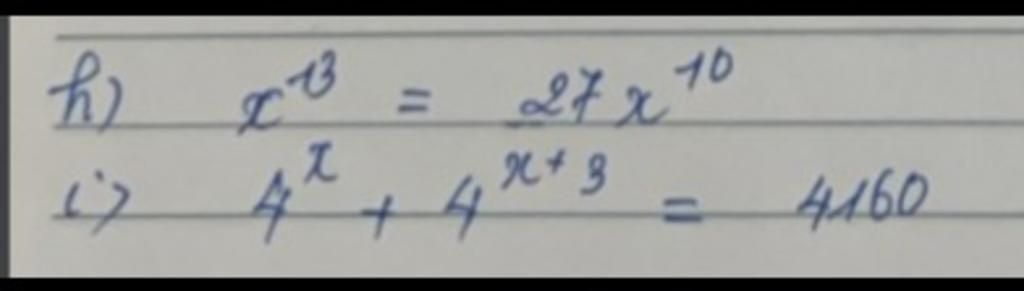 h) x¹³ = 27x¹⁰
i) 4ˣ + 4ˣ⁺³ = 4160